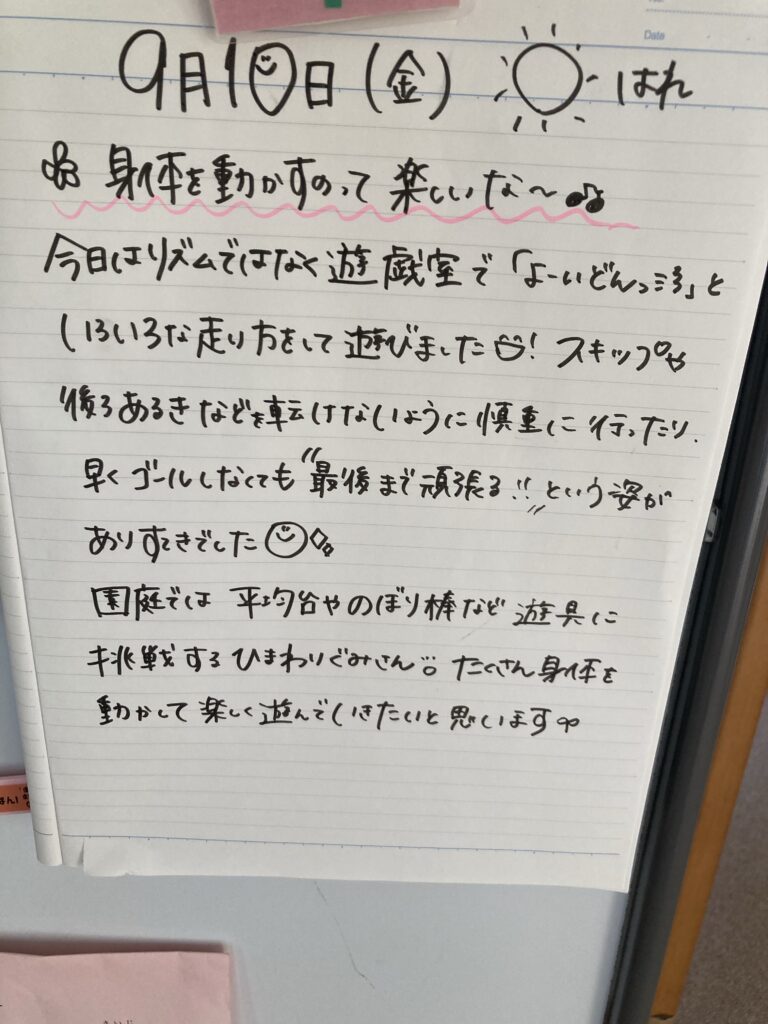 Date
9月10日(金) はれ
身体を動かすのって楽しいな〜♫
今日はリズムではなく遊戯室で「よーいどんっ」と
いろいろな走り方をして遊びました!スキップや
後ろあるきなどを転けないように慎重に行ったり、
早くゴールしなくても"最後まで頑張る!!"という姿が
ありすてきでした
園庭では平均台やのぼり棒など遊具に
挑戦するひまわりぐみさん。たくさん身体を
動かして楽しく遊んでいきたいと思います